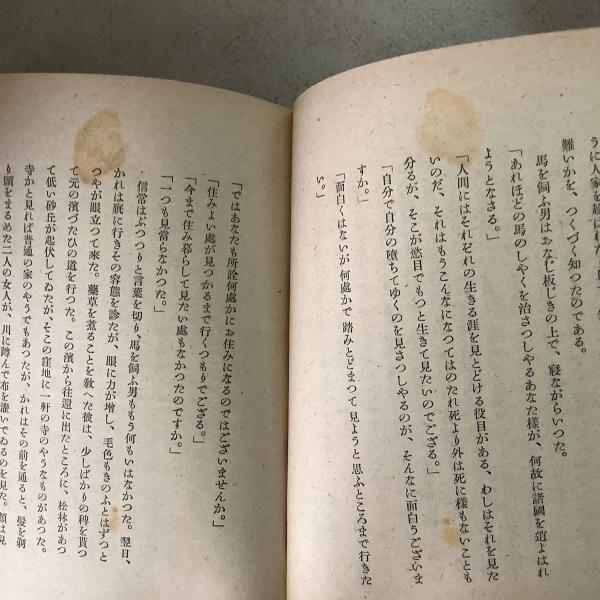 うに人家を
難いかを、つくづく知つたのである。
馬を飼ふ男はおなじ板じきの上で、寝ながらいつた。
「あれほどの馬のしやくを治さつしやるあなた様が、何故に諸國を遊よはれ
ようとなさる。」
「人間にはそれぞれの生きる涯を見とどける役目がある、わしはそれを見た
いのだ、それはもうこんなになつてはのたれ死より外は死に様もないことも
分るが、そこが慾目でもつと生きて見たいのでござる。」
「自分で自分の堕ちてゆくのを見さつしやるのが、そんなに面白うございま
すか。」
「面白くはないが何處かで踏みとどまつて見ようと思ふところまで行きた
い。」
「ではあなたも所詮何處かにお住みになるのではございませんか。」
「住みよい處が見つかるまで行くつもりでござる。」
「今まで住み暮らして見たい處もなかつたのですか。」
「一つも見當らなかつた。」
信常はぶつつりと言葉を切り、馬を飼ふ男ももう何もいはなかつた。翌日、
かれは厩に行きその容態を診たが、眼に力が増し、毛色もきのふとはずつと
つやが眼立つて來た。藥草を煮ることを教へた彼は、少しばかりの稗を貰つ
て元の濱づたひの道を行つた。この濱から往還に出たところに、松林があつ
て低い砂丘が起伏してゐたが、そこの窪地に一軒の寺のやうなものがあつた。
寺かと見れば普通の家のやうでもあつたが、かれはその前を通ると、髪を剃
り頭をまるめた二人の女人が、川に蹲んで布を濯いでゐるのを見た。顔は見